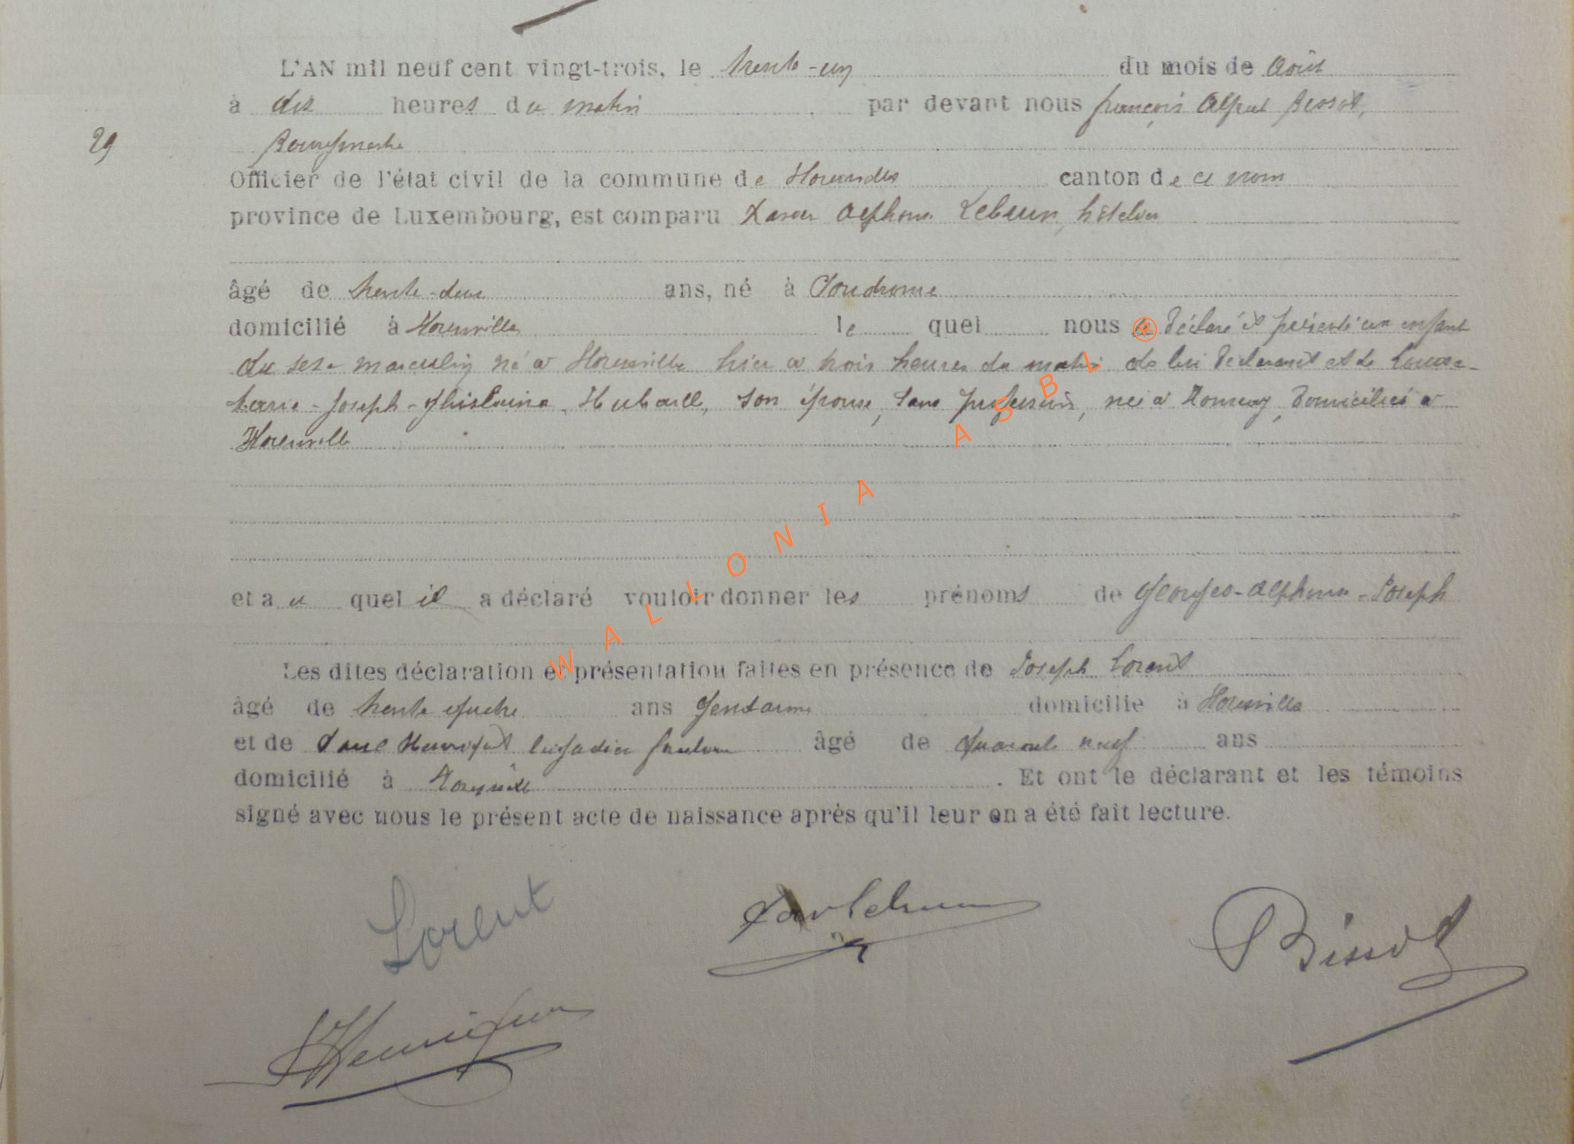 L'AN mil neuf cent vingt-trois, le trente-un du mois de Août
à dix heures du matin par devant nous françois Alfred Bissot,
29
Bourgmestre
Officier de l'état civil de la commune de canton de ce nom
province de Luxembourg, est comparu Xavier Alphonse Lebrun, hôtelier
âgé de trente-deux ans, né à
domicilié à le quel nous a déclaré et présenté un enfant
du sexe masculin né à hier à trois heures du matin de lui déclarant et de
Marie-Joseph-Ghislaine son épouse, sans profession, née à domiciliés à
et a u quel il a déclaré vouloir donner les prénoms de Georges-Alphonse-Joseph
Les dites déclaration et présentation faites en présence de Joseph Lorent
âgé de trente quatre ans Gendarme domicilié à
et de âgé de quarante neuf ans
domicilié à . Et ont le déclarant et les témoins
signé avec nous le présent acte de naissance après qu'il leur en a été fait lecture.
WALLONIA ASBL
©
Lorent
Bissot